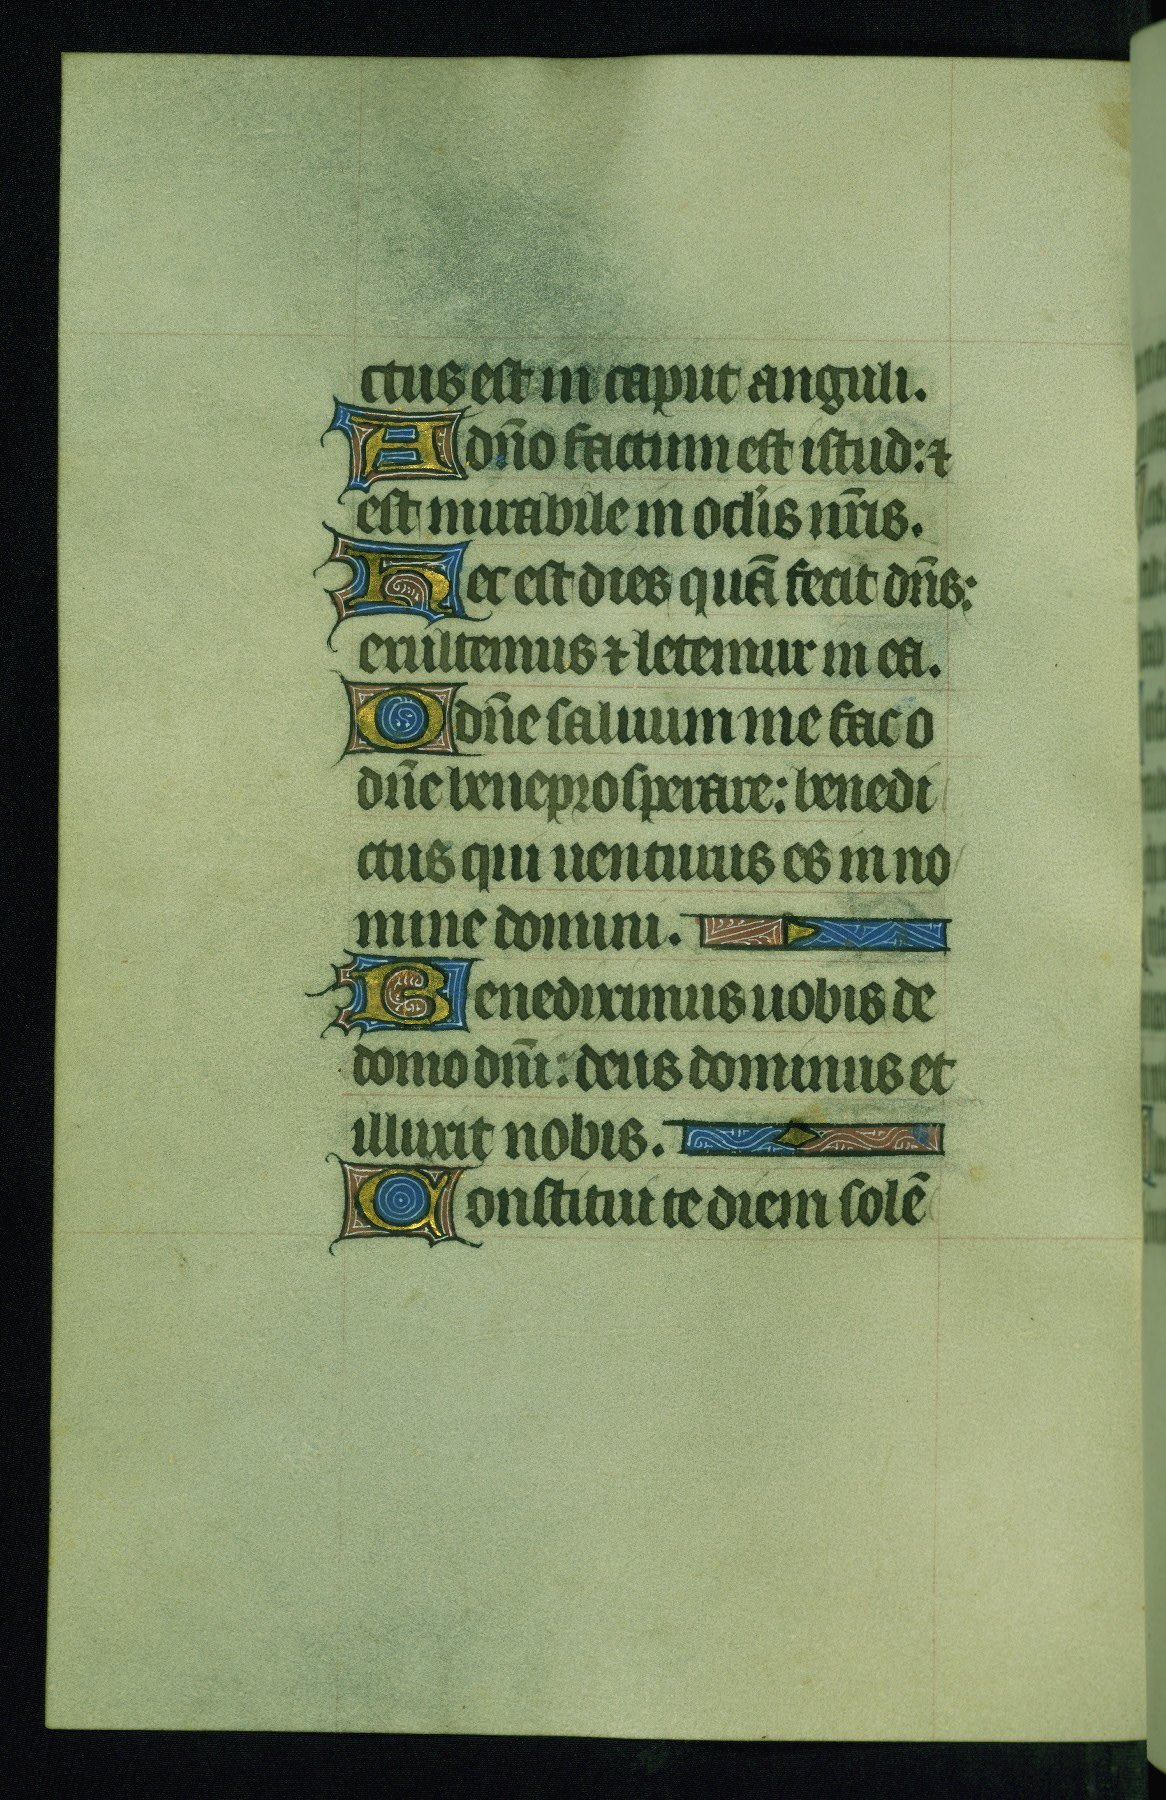 ctus est in caput anguli.
A dño factum est istud: ⁊
est mirabile in oclis nr̃is.
Hec est dies quã fecit dñs:
exultemus ⁊ letemur in ea.
O dñe saluum me fac o
dñe bene prosperare: benedi
ctus qui uenturus es in no
mine domini.
Benediximus uobis de
domo dñi: deus dominus et
illuxit nobis.
Constituite diem solẽ